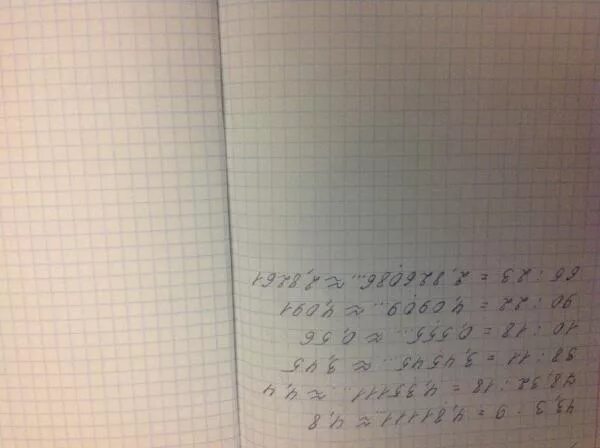 43,3 : 9 = 4,81111 ≈ 4,8
78,32 : 18 = 4,35111... ≈ 4,4
38 : 11 = 3,4545... ≈ 3,45
10 : 18 = 0,555... ≈ 0,56
90 : 22 = 4,0909... ≈ 4,091
65 : 23 = 2,826086... ≈ 2,8261